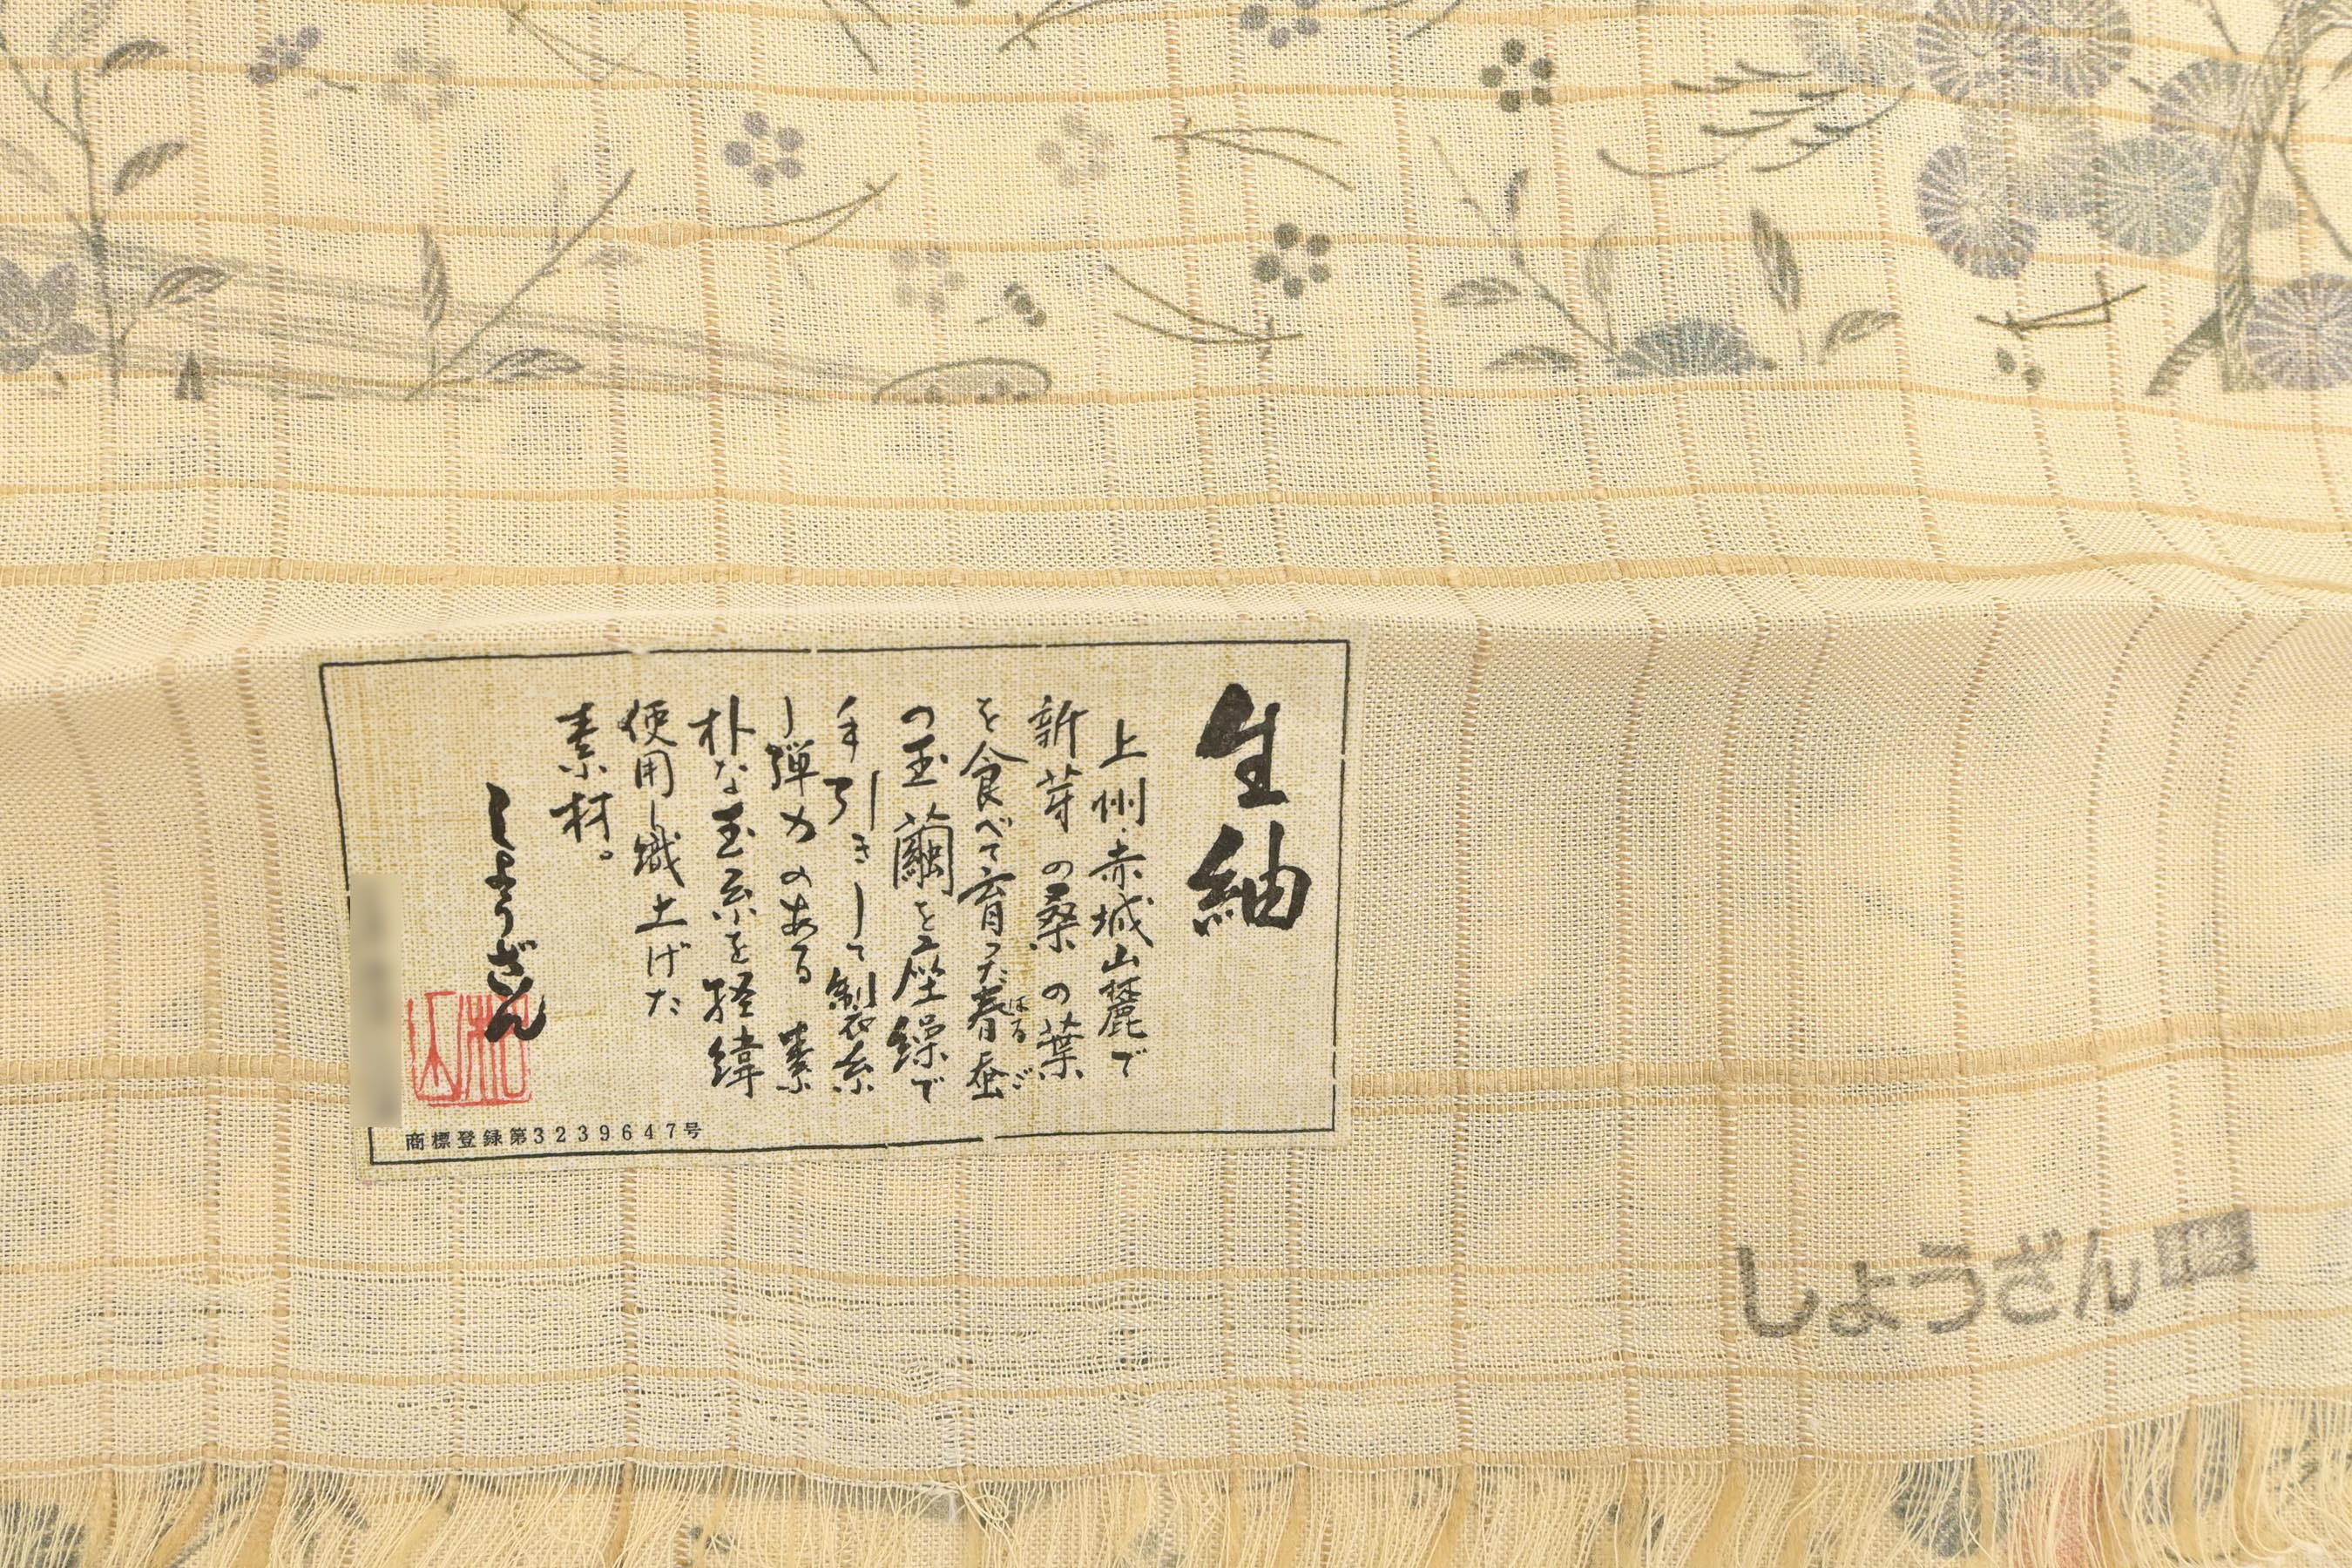 生紬
上州・赤城山麓で
新芽の桑の葉
を食べて育った春蚕
はるご
の玉繭を座繰で
手引きして製糸
し弾力のある素
朴な玉糸を経緯
使用し織上げた
素材。
しょうざん
商標登録第3239647号
しょうざん